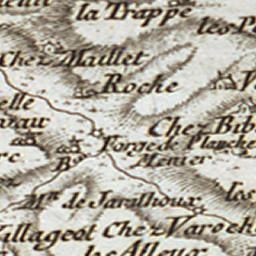 la Trappe
les Pe
Chez Maillet
Roche
elle
Chez Bib
Forge de Planche
Menier
Bs
les
Mn de Jaralhoux
Villageot
Chez Varoch
les Alleux